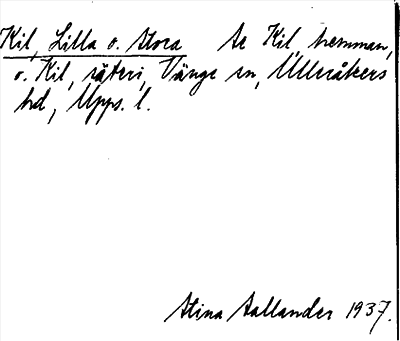 Kil, Lilla o. Stora Se Kil, hemman,
o. Kil, säteri, Vänge sn, Ulleråkers
hd, Upps. l.
Stina Sallander 1937.